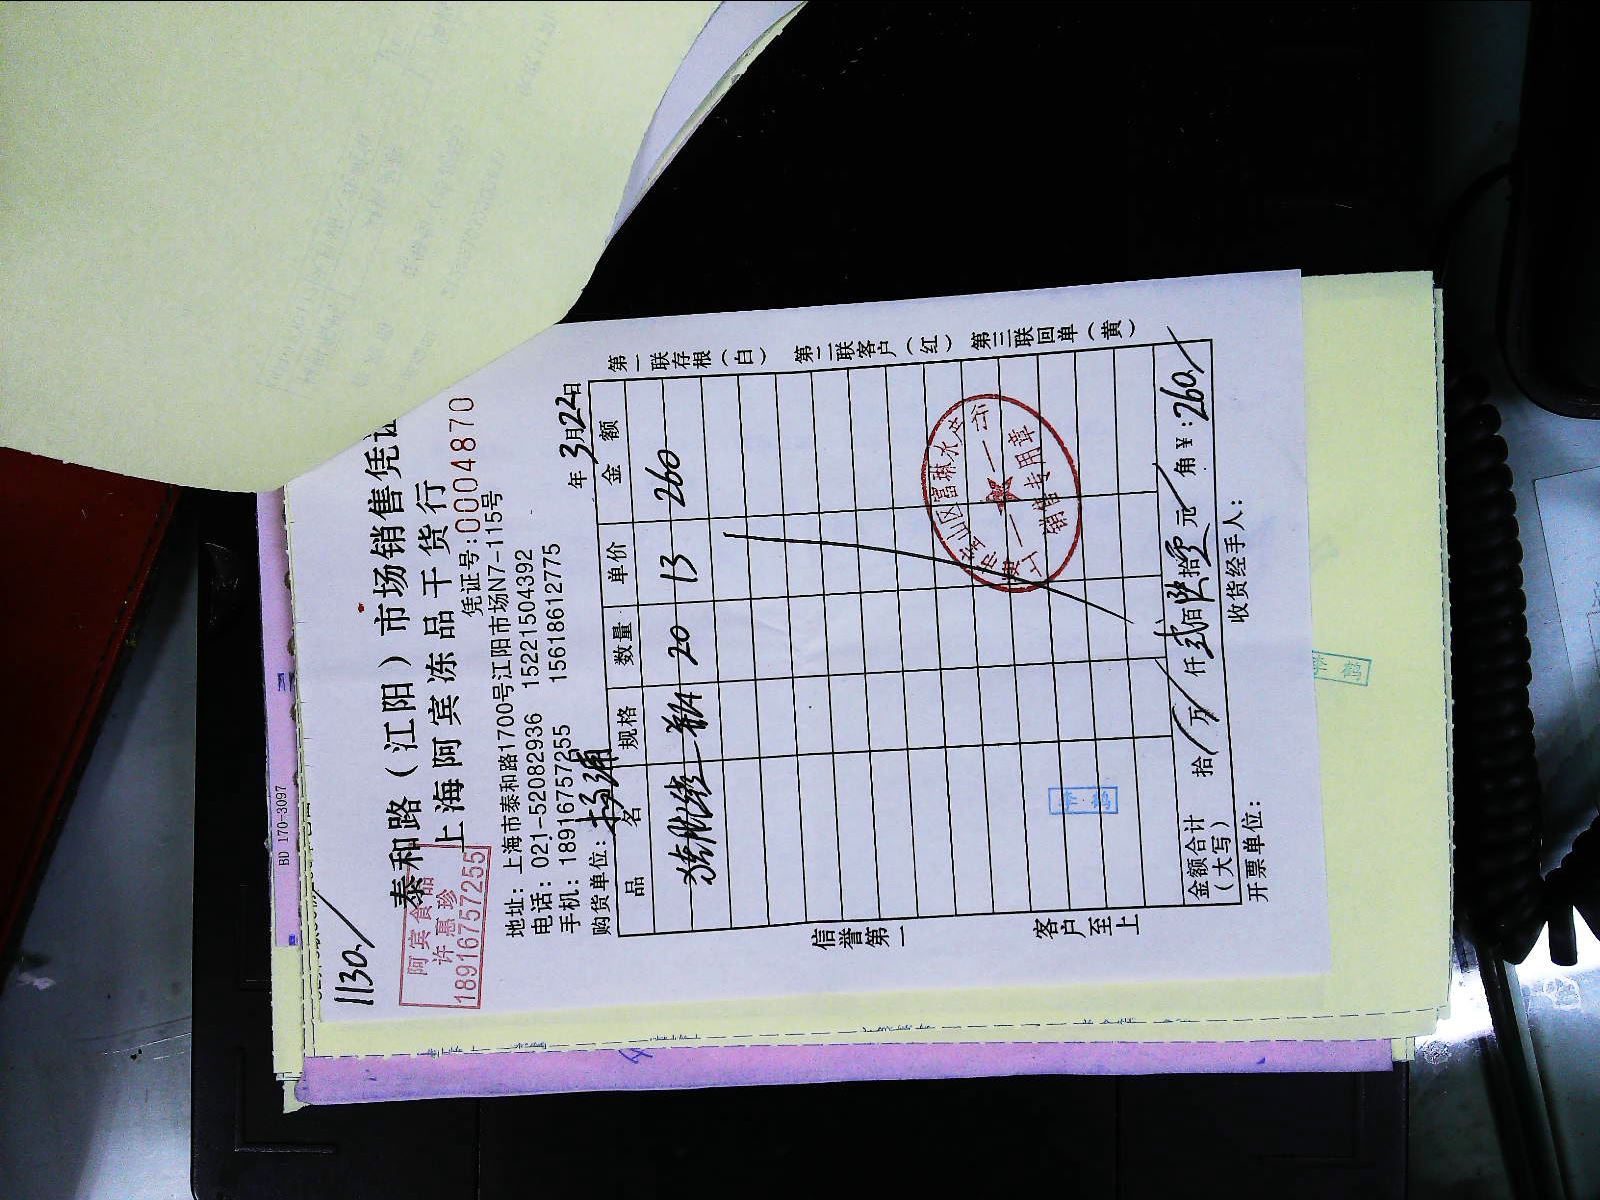 1130./
阿宾食品
许惠珍
18916757255
泰和路（江阳）市场销售凭证
上海阿宾冻品干货行
凭证号:0004870
地址：上海市泰和路1700号江阳市场N7-115号
电话：021-52082936 15221504392
手机：18916757255 15618612775
购货单位：
年3月22日
品名 规格 数量 单价 金额
20 13 260
第一联存根（白） 第二联客户（红） 第三联回单（黄）
信誉第一 客户至上
上海市宝山区富琳水产行
销售专用章
金额合计（大写） 拾 万 仟贰佰陆拾零元 角 ¥:260./
开票单位： 收货经手人：
BD 170-3097